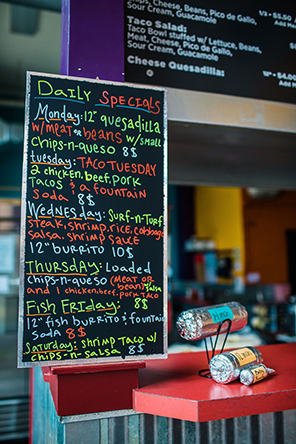 Daily Specials
Monday: 12" quesadilla
w/meat or beans w/small
chips-n-queso 8$
tuesday: TACO TUESDAY
2 chicken, beef, pork
tacos & a fountain
soda 8$
Wednesday: Surf-n-Turf
steak, shrimp, rice, cabbage
salsa, shrimp sauce
12" burrito 10$
Thursday: Loaded
chips-n-queso (meat or
beans) salsa
and 1 chicken, beef, pork taco
8$
Fish Friday:
12" fish burrito & fountain
soda 8$
Saturday: shrimp taco w/
chips-n-salsa 8$
Chips, Cheese, Beans, Pico de Gallo,
Sour Cream, Guacamole
Taco Salad:
Taco Bowl stuffed w/ Lettuce, Beans,
Meat, Cheese, Pico de Gallo,
Sour Cream, Guacamole
Cheese Quesadilla: